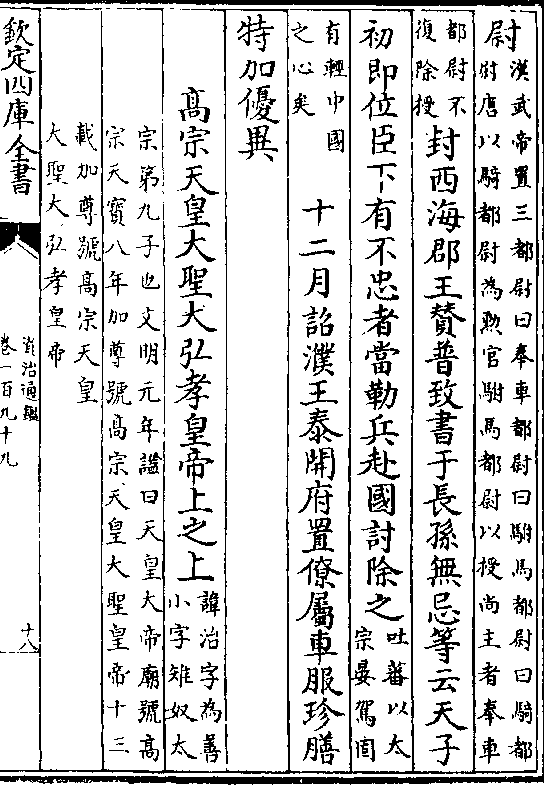 尉漢武帝置三都尉曰奉車都尉曰駙馬都尉曰騎都
尉唐以騎都尉為勲官駙馬都尉以授尚主者奉車
都尉不
復除授封西海郡王賛普致書于長孫無忌等云天子
初即位臣下有不忠者當勒兵赴國討除之吐蕃以太
宗晏駕固
有輕中國
之心矣　十二月詔濮王泰開府置僚屬車服珍膳
特加優異
髙宗天皇大聖大弘孝皇帝上之上諱治字為善
小字雉奴太
宗第九子也文明元年諡曰天皇大帝廟號髙
宗天寳八年加尊號髙宗天皇大聖皇帝十三
載加尊號髙宗天皇
大聖大弘孝皇帝
欽定四庫全書
資治通鑑
卷一百九十九
十八